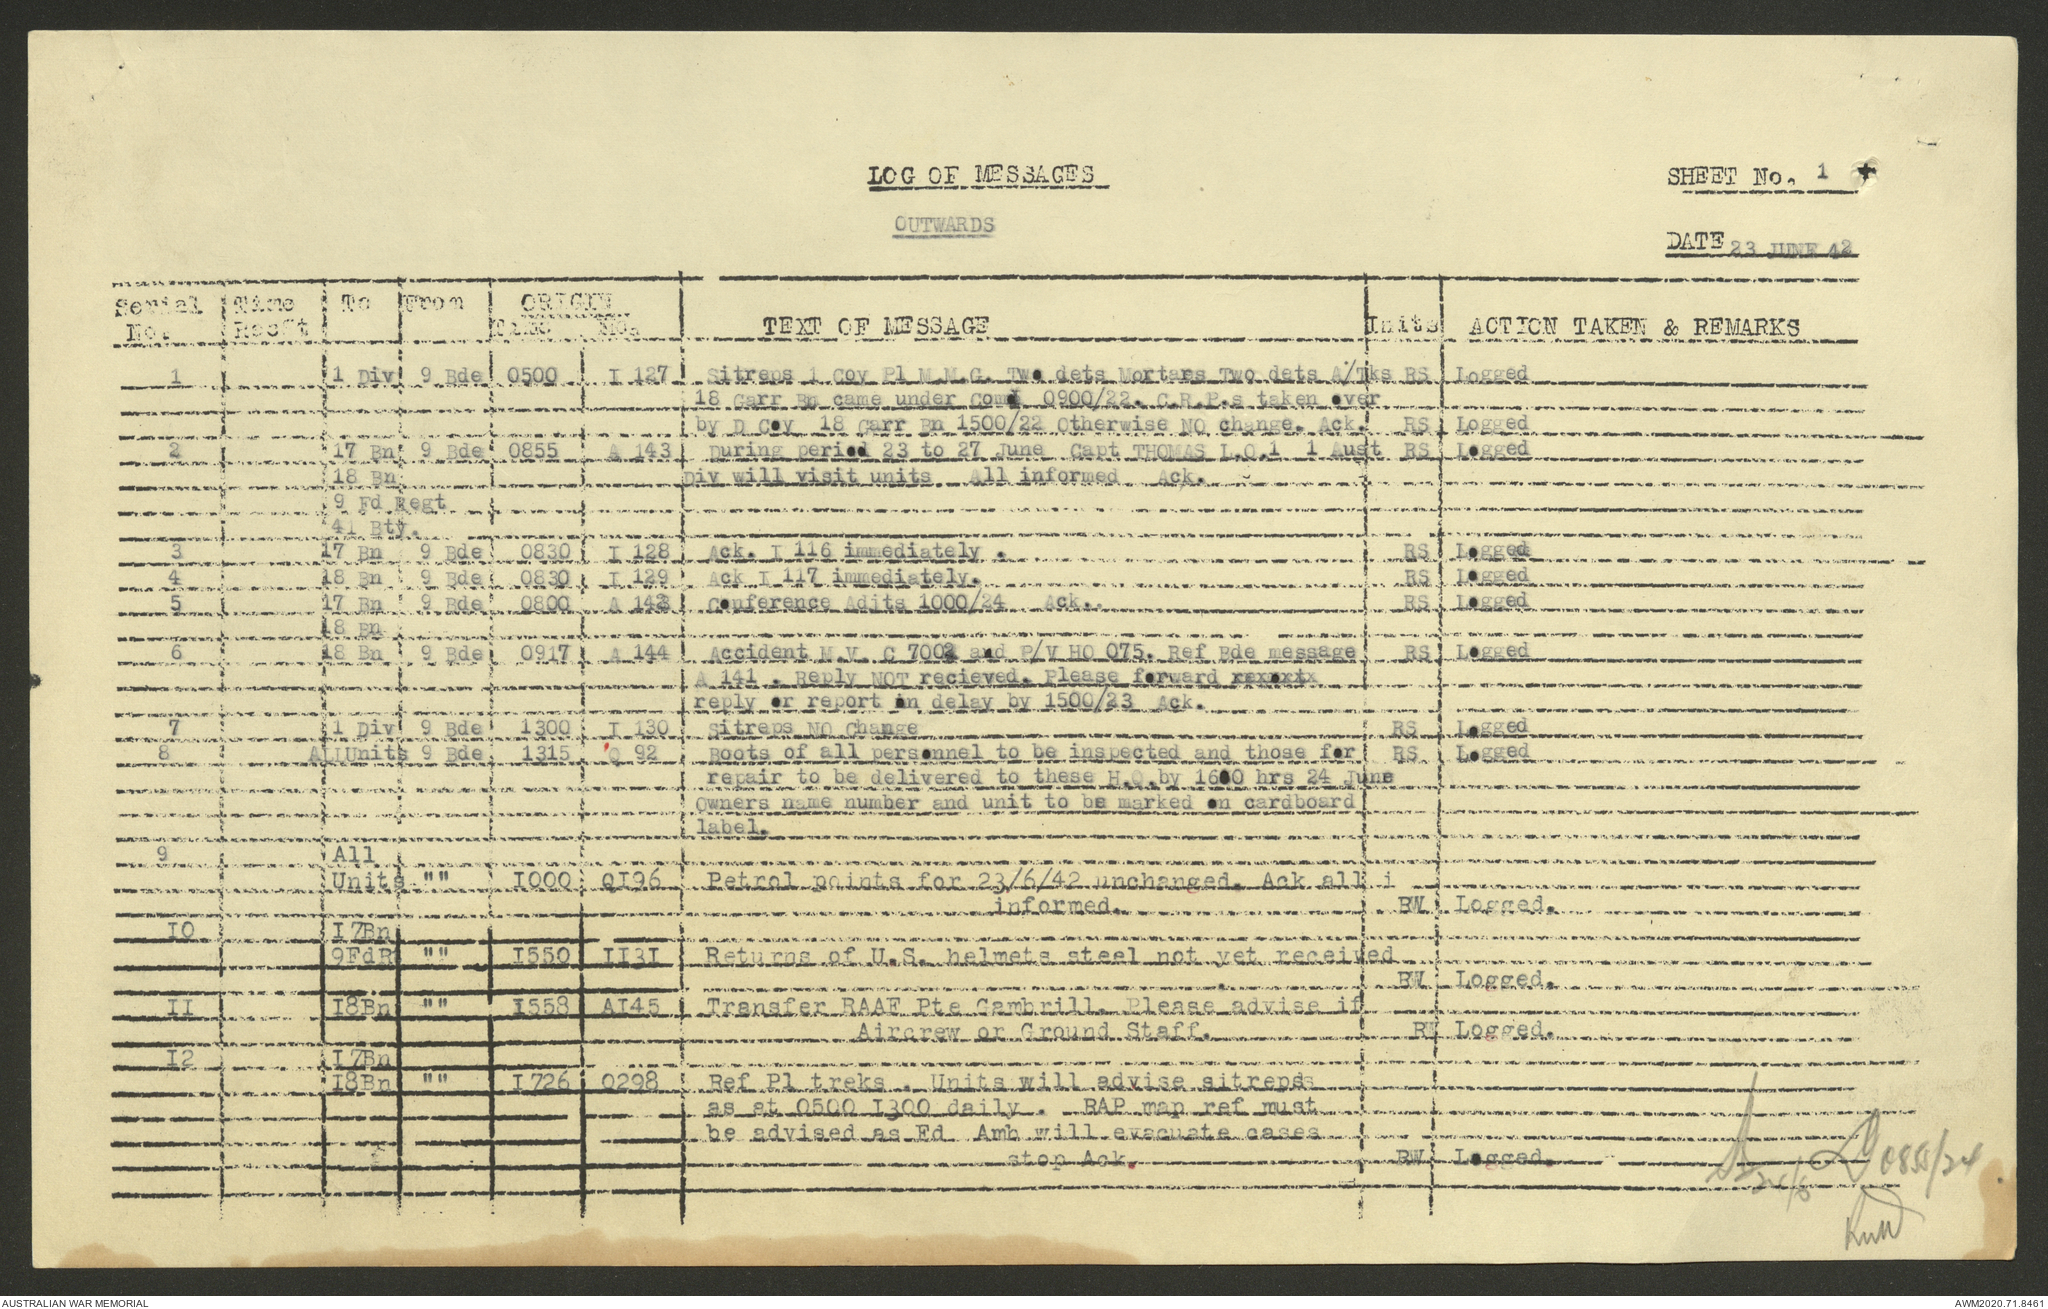 LOG OF MESSAGES
SHEET No. 1
OUTWARDS
DATE 23 JUNE 42
Serial No. Time Rec'ft To From ORIGIN Time No. TEXT OF MESSAGE Inits ACTION TAKEN & REMARKS
1 1 Div 9 Bde 0500 I 127 Sitreps 1 Coy Pl M.M.G. Two dets Mortars Two dets A/Tks RS Logged
18 Garr Bn came under Comd 0900/22. C.R.P.s taken over
by D Coy 18 Garr Bn 1500/22 Otherwise NO change. Ack. RS Logged
2 17 Bn 9 Bde 0855 A 143 During period 23 to 27 June Capt THOMAS L.O.1 1 Aust RS Logged
18 Bn Div will visit units All informed Ack.
9 Fd Regt
41 Bty.
3 17 Bn 9 Bde 0830 I 128 Ack. I 116 immediately . RS Logged
4 18 Bn 9 Bde 0830 I 129 Ack I 117 immediately. RS Logged
5 17 Bn 9 Bde 0800 A 142 Conference Adjts 1000/24 Ack.. RS Logged
18 Bn
6 18 Bn 9 Bde 0917 A 144 Accident M.V. C 7002 and P/V HO 075. Ref Bde message RS Logged
A 141 . Reply NOT recieved. Please forward
reply or report on delay by 1500/23 Ack.
7 1 Div 9 Bde 1300 I 130 Sitreps NO Change RS Logged
8 AllUnits 9 Bde 1315 Q 92 Boots of all personnel to be inspected and those for RS Logged
repair to be delivered to these H.Q.by 1600 hrs 24 June
Owners name number and unit to be marked on cardboard
label.
9 All
Units "" I000 QI96 Petrol points for 23/6/42 unchanged. Ack all i
informed. RW Logged.
IO I7Bn
9FdR "" I550 II3I Returns of U.S. helmets steel not yet received
RW Logged.
II I8Bn "" I558 AI45 Transfer RAAF Pte Gambrill. Please advise if
Aircrew or Ground Staff. RW Logged.
I2 I7Bn
I8Bn "" I726 O298 Ref Pl treks . Units will advise sitreps
as at 0500 I300 daily . RAP map ref must
be advised as Fd Amb will evacuate cases
stop Ack. RW Logged.
24/6 0855/24
AUSTRALIAN WAR MEMORIAL
AWM2020.71.8461